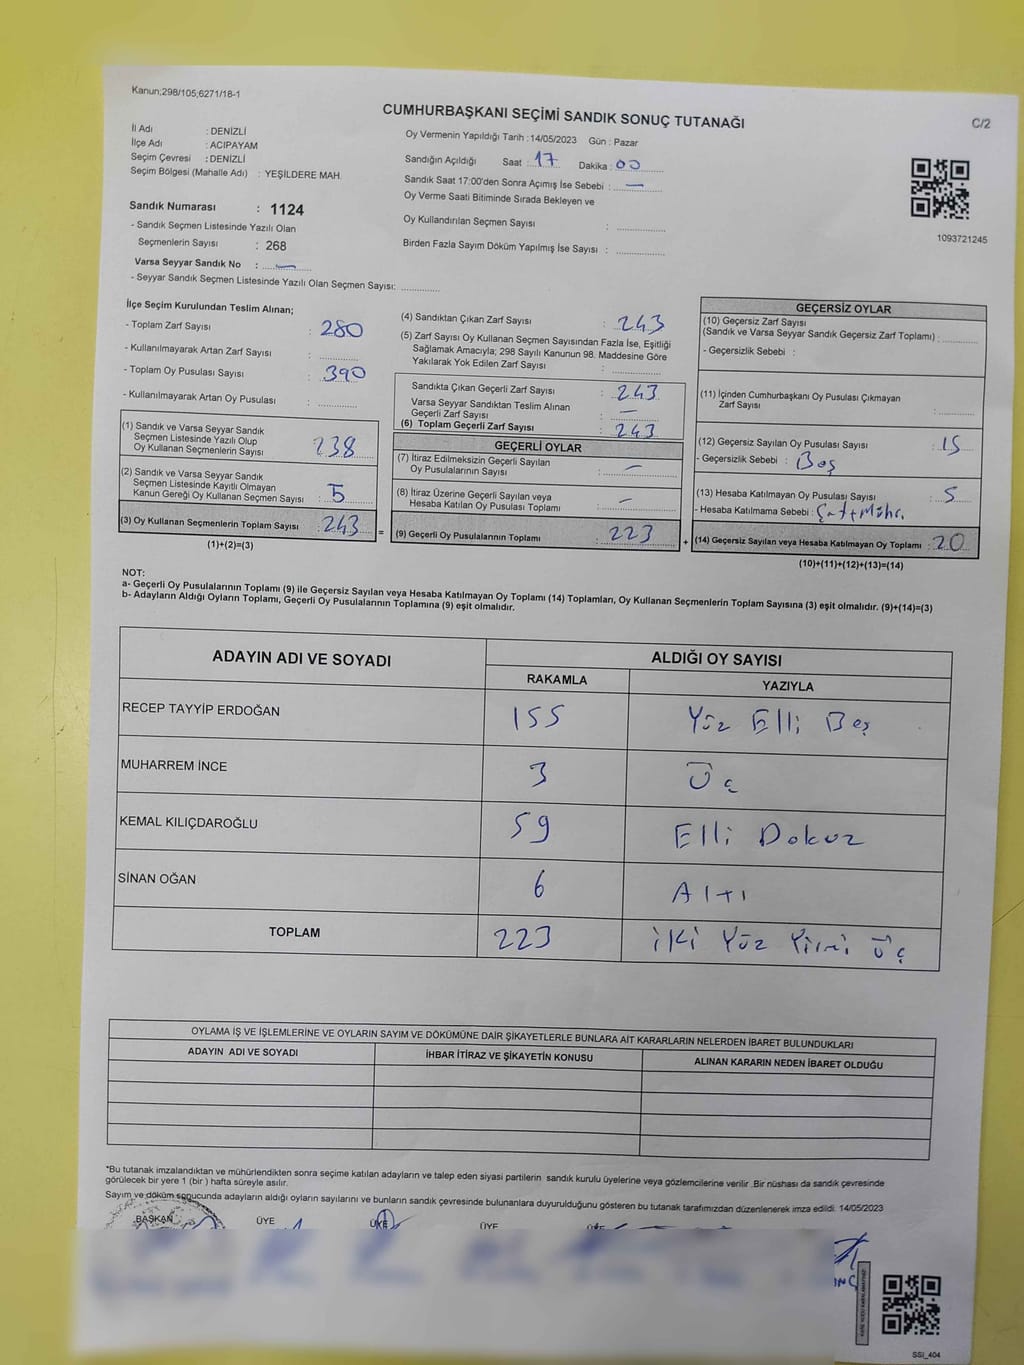 Kanun;298/105;6271/18-1
CUMHURBAŞKANI SEÇİMİ SANDIK SONUÇ TUTANAĞI
C/2
İl Adı : DENİZLİ
İlçe Adı : ACIPAYAM
Seçim Çevresi : DENİZLİ
Seçim Bölgesi (Mahalle Adı) : YEŞİLDERE MAH.
Sandık Numarası : 1124
- Sandık Seçmen Listesinde Yazılı Olan
Seçmenlerin Sayısı : 268
Varsa Seyyar Sandık No : —
- Seyyar Sandık Seçmen Listesinde Yazılı Olan Seçmen Sayısı: ..............
Oy Vermenin Yapıldığı Tarih : 14/05/2023 Gün : Pazar
Sandığın Açıldığı Saat : 17 Dakika : 00
Sandık Saat 17:00'den Sonra Açımış İse Sebebi : —
Oy Verme Saati Bitiminde Sırada Bekleyen ve
Oy Kullandırılan Seçmen Sayısı : ..............
Birden Fazla Sayım Döküm Yapılmış İse Sayısı : ..............
1093721245
İlçe Seçim Kurulundan Teslim Alınan;
- Toplam Zarf Sayısı : 280
- Kullanılmayarak Artan Zarf Sayısı : ..............
- Toplam Oy Pusulası Sayısı : 390
- Kullanılmayarak Artan Oy Pusulası : ..............
(1) Sandık ve Varsa Seyyar Sandık
Seçmen Listesinde Yazılı Olup
Oy Kullanan Seçmenlerin Sayısı : 238
(2) Sandık ve Varsa Seyyar Sandık
Seçmen Listesinde Kayıtlı Olmayan
Kanun Gereği Oy Kullanan Seçmen Sayısı : 5
(3) Oy Kullanan Seçmenlerin Toplam Sayısı : 243 =
(1)+(2)=(3)
(4) Sandıktan Çıkan Zarf Sayısı : 243
(5) Zarf Sayısı Oy Kullanan Seçmen Sayısından Fazla İse, Eşitliği
Sağlamak Amacıyla; 298 Sayılı Kanunun 98. Maddesine Göre
Yakılarak Yok Edilen Zarf Sayısı : ..............
Sandıkta Çıkan Geçerli Zarf Sayısı : 243
Varsa Seyyar Sandıktan Teslim Alınan
Geçerli Zarf Sayısı : —
(6) Toplam Geçerli Zarf Sayısı : 243
GEÇERLİ OYLAR
(7) İtiraz Edilmeksizin Geçerli Sayılan
Oy Pusulalarının Sayısı : —
(8) İtiraz Üzerine Geçerli Sayılan veya
Hesaba Katılan Oy Pusulası Toplamı : —
(9) Geçerli Oy Pusulalarının Toplamı : 223 +
GEÇERSİZ OYLAR
(10) Geçersiz Zarf Sayısı
(Sandık ve Varsa Seyyar Sandık Geçersiz Zarf Toplamı) : ..............
- Geçersizlik Sebebi :
(11) İçinden Cumhurbaşkanı Oy Pusulası Çıkmayan
Zarf Sayısı : ..............
(12) Geçersiz Sayılan Oy Pusulası Sayısı : 15
- Geçersizlik Sebebi : Boş
(13) Hesaba Katılmayan Oy Pusulası Sayısı : 5
- Hesaba Katılmama Sebebi :
(14) Geçersiz Sayılan veya Hesaba Katılmayan Oy Toplamı : 20
(10)+(11)+(12)+(13)=(14)
NOT:
a- Geçerli Oy Pusulalarının Toplamı (9) ile Geçersiz Sayılan veya Hesaba Katılmayan Oy Toplamı (14) Toplamları, Oy Kullanan Seçmenlerin Toplam Sayısına (3) eşit olmalıdır. (9)+(14)=(3)
b- Adayların Aldığı Oyların Toplamı, Geçerli Oy Pusulalarının Toplamına (9) eşit olmalıdır.
ADAYIN ADI VE SOYADI ALDIĞI OY SAYISI
RAKAMLA YAZIYLA
RECEP TAYYİP ERDOĞAN 155 Yüz Elli Beş
MUHARREM İNCE 3 Üç
KEMAL KILIÇDAROĞLU 59 Elli Dokuz
SİNAN OĞAN 6 Altı
TOPLAM 223 İki Yüz Yirmi Üç
OYLAMA İŞ VE İŞLEMLERİNE VE OYLARIN SAYIM VE DÖKÜMÜNE DAİR ŞİKAYETLERLE BUNLARA AİT KARARLARIN NELERDEN İBARET BULUNDUKLARI
ADAYIN ADI VE SOYADI İHBAR İTİRAZ VE ŞİKAYETİN KONUSU ALINAN KARARIN NEDEN İBARET OLDUĞU
*Bu tutanak imzalandıktan ve mühürlendikten sonra seçime katılan adayların ve talep eden siyasi partilerin sandık kurulu üyelerine veya gözlemcilerine verilir .Bir nüshası da sandık çevresinde
görülecek bir yere 1 (bir ) hafta süreyle asılır.
Sayım ve döküm sonucunda adayların aldığı oyların sayılarını ve bunların sandık çevresinde bulunanlara duyurulduğunu gösteren bu tutanak tarafımızdan düzenlenerek imza edildi. 14/05/2023
BAŞKAN ÜYE ÜYE ÜYE
SSİ_404